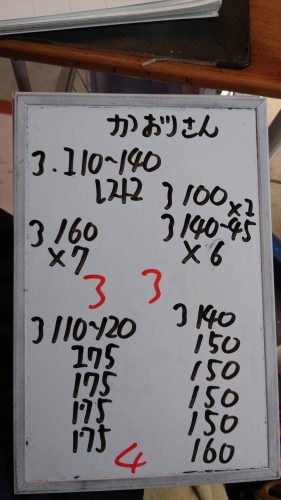 かおりさん
3.110~140
3 100 ×1
3 160
×7
3 140~45
×6
3 3
3 110~120
175
175
175
175
3 140
150
150
150
150
160
4